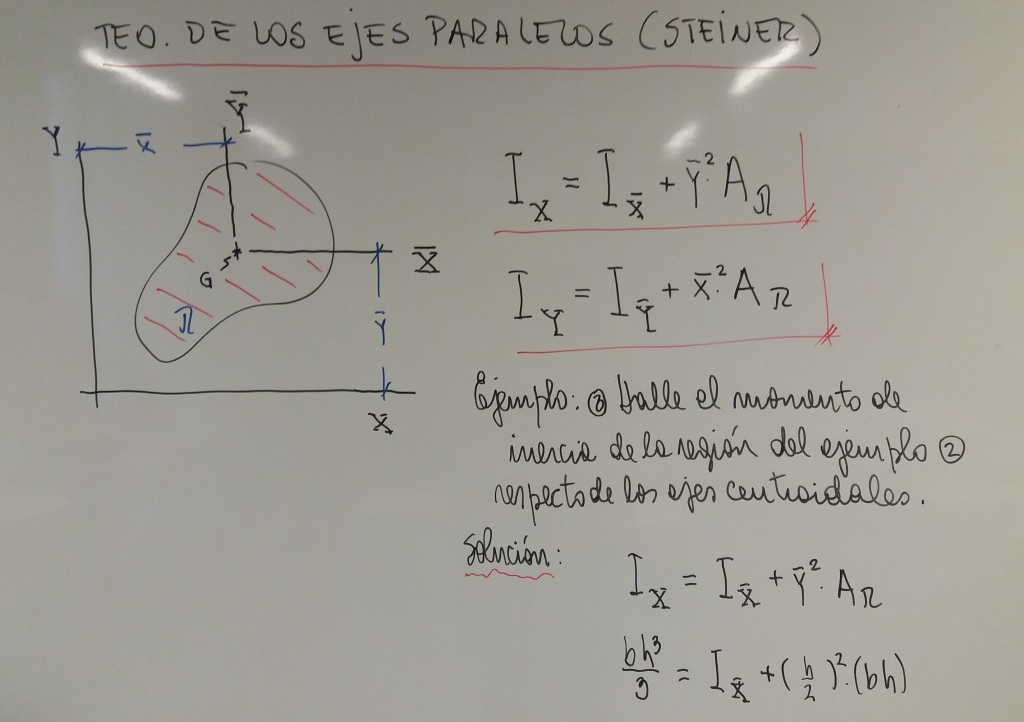 TEO. DE LOS EJES PARALELOS (STEINER)
Y x̄ Ȳ
X̄
G
Ω
ȳ
X
I_X = I_X̄ + ȳ²·A_Ω
I_Y = I_Ȳ + x̄²·A_Ω
Ejemplo: ③ Halle el momento de
inercia de la región del ejemplo ②
respecto de los ejes centroidales.
Solución:
I_X = I_X̄ + ȳ²·A_Ω
bh³/3 = I_X̄ + (h/2)²·(bh)